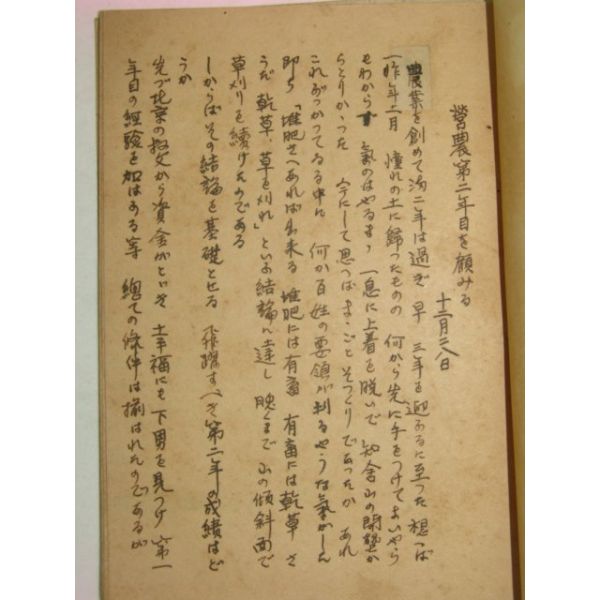 營農第二年目を顧みる
十二月二八日
農業を創めて満二年は過ぎ 早 三年を迎あるに至つた 想へば
一昨年二月 憧れの土に歸つたものの 何から先に手をつけてよいやら
もわからず 氣のはやるまゝ 一息に上着を脱いで 知舎山の開墾か
らとりかゝつた 今にして思つばまゝごとそつくりであつたが あれ
これぶつかつてゐる中に 何か百姓の要領が判るやうな氣がしん
即ち「堆肥さへあれば出来る 堆肥には有畜 有畜には乾草 さ
うだ 乾草、草を刈れ」といふ結論に達し 晩くまで 山の傾斜面で
草刈りを續けたのである
しからばその結論を基礎とせる 飛躍すべき第二年の成績はど
うか
先づ北京の叔父から資金がとゞき 幸福にも下男を見つけ 第一
年目の經驗を加はある等 總ての條件は揃はれたのであるが